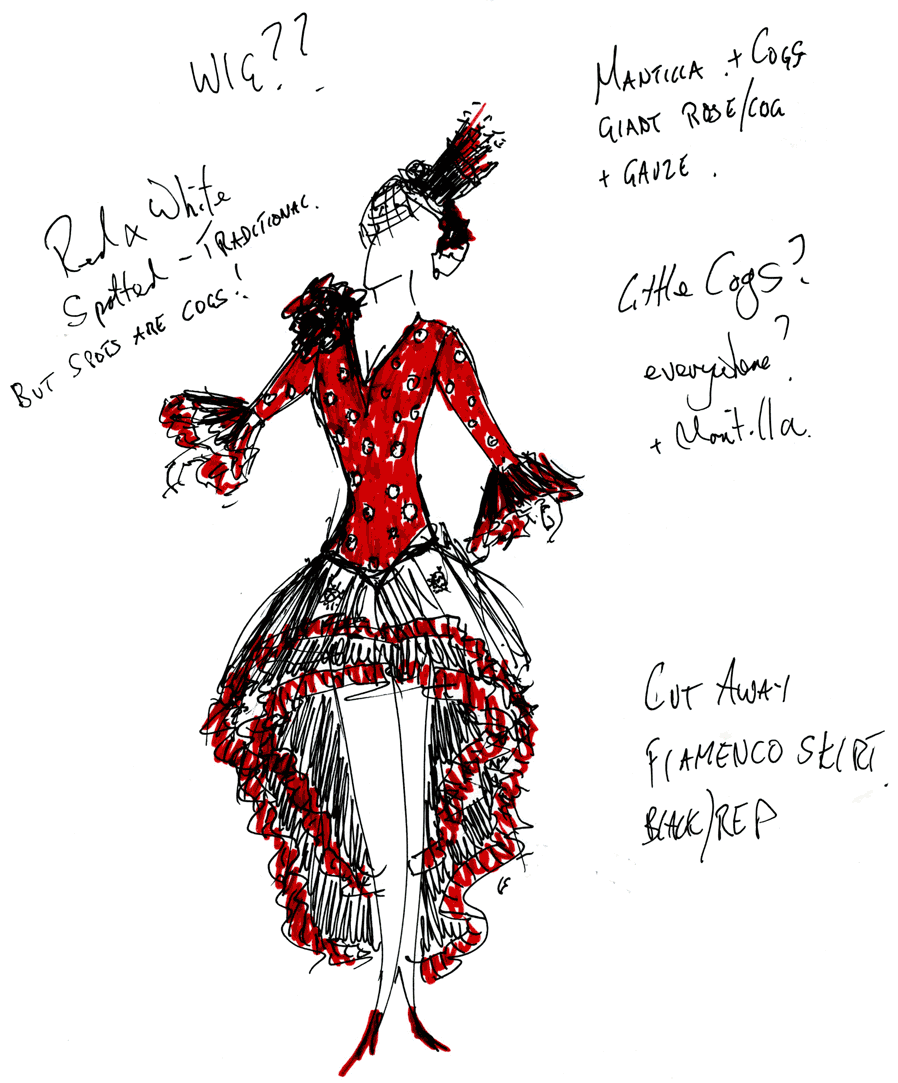 WIG??
MANTILLA + COGS
GIANT ROSE/COG
+ GAUZE.
Red & White
Spotted - TRADITIONAL.
BUT SPOTS ARE COGS!
Little Cogs?
everywhere?
+ Mantilla.
CUT AWAY
FLAMENCO SKIRT.
BLACK/RED